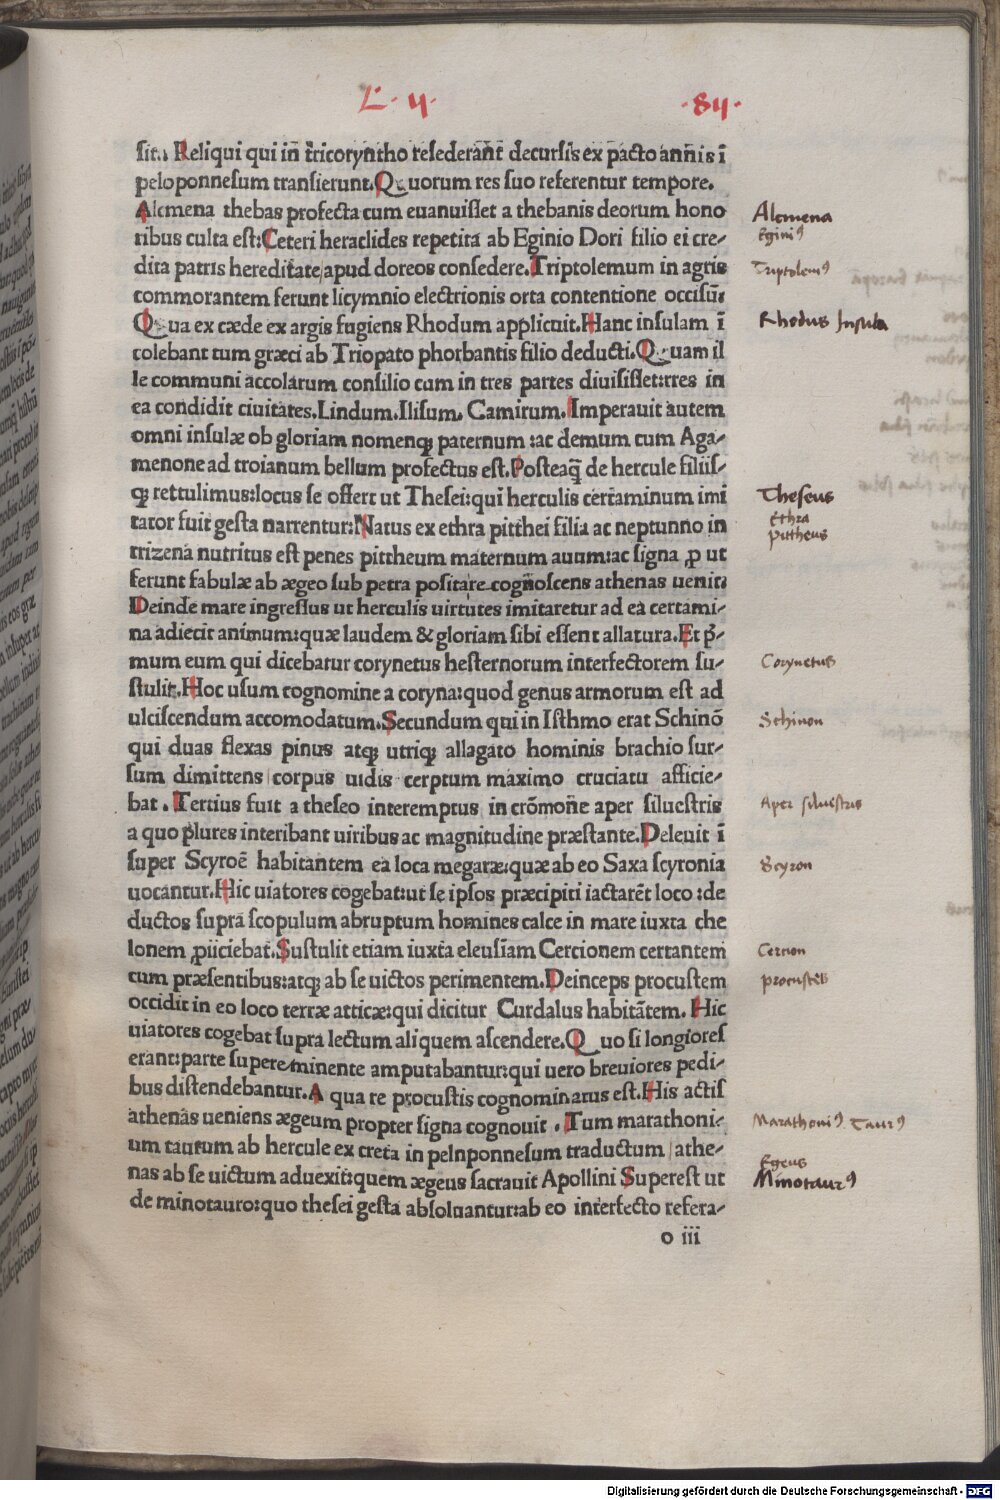 L. 4
.84.
sit. Reliqui qui in̄ tricoryntho resederānt̄ decursis ex pacto annis ī
peloponnesum transierunt. Quorum res suo referentur tempore.
Alcmena thebas profecta cum euanuisset a thebanis deorum hono
ribus culta est: Ceteri heraclides repetita ab Eginio Dori filio ei cre-
dita patris hereditate apud doreos consedere. Triptolemum in agris
commorantem ferunt licymnio electrionis orta contentione occisū:
Qua ex cæde ex argis fugiens Rhodum applicuit. Hanc insulam ī
colebant tum græci ab Triopato phorbantis filio deducti. Quam il
le communi accolarum consilio cum in tres partes diuisisset: tres in
ea condidit ciuitates. Lindum. Ilisum. Camirum. Imperauit autem
omni insulæ ob gloriam nomenqꝫ paternum: ac demum cum Aga-
menone ad troianum bellum profectus est. Posteaq̄ de hercule filiis-
qꝫ rettulimus: locus se offert ut Thesei: qui herculis certaminum imi
tator fuit gesta narrentur: Natus ex ethra pitthei filia ac neptunno in
trizena nutritus est penes pittheum maternum auum: ac signa ꝓ ut
ferunt fabulæ ab ægeo sub petra positare cognoscens athenas uenit:
Deinde mare ingressus ut herculis uirtutes imitaretur ad ea certami-
na adiecit animum: quæ laudem & gloriam sibi essent allatura. Et p̄-
mum eum qui dicebatur corynetus hesternorum interfectorem su-
stulit. Hoc usum cognomine a coryna: quod genus armorum est ad
ulciscendum accomodatum. Secundum qui in Isthmo erat Schinō
qui duas flexas pinus atqꝫ utriqꝫ allagato hominis brachio sur-
sum dimittens corpus uidis cerptum maximo cruciatu afficie-
bat. Tertius fuit a theseo interemptus in crōmone aper siluestris
a quo plures interibant uiribus ac magnitudine præstante. Deleuit ī
super Scyroē habitantem ea loca megaræ: quæ ab eo Saxa scyronia
uocantur. Hic uiatores cogebat: ut se ipsos præcipiti iactarēt loco: de
ductos supra scopulum abruptum homines calce in mare iuxta che
lonem ꝓiiciebat. Sustulit etiam iuxta eleusiam Cercionem certantem
cum præsentibus: atqꝫ ab se uictos perimentem. Deinceps procustem
occidit in eo loco terræ atticæ: qui dicitur Curdalus habitātem. Hic
uiatores cogebat supra lectum aliquem ascendere. Quo si longiores
erant: parte supereminente amputabantur: qui uero breuiores pedi-
bus distendebantur. A qua re procustis cognominatus est. His actis
athenas ueniens ægeum propter signa cognouit. Tum marathoni-
um taurum ab hercule ex creta in pelnponnesum traductum athe-
nas ab se uictum aduexit: quem ægeus sacrauit Apollini Superest ut
de minotauro: quo thesei gesta absoluantur: ab eo interfecto refera-
o iii
Alcmena
Eginiꝰ
Triptolemꝰ
Rhodus Insula
Theseus
Ethra
pittheus
Corynetus
Schinon
Aper siluestris
Scyron
Cercion
procustes
Marathoniꝰ Taurꝰ
Egeus
Minotaurꝰ
Digitalisierung gefördert durch die Deutsche Forschungsgemeinschaft - DFG